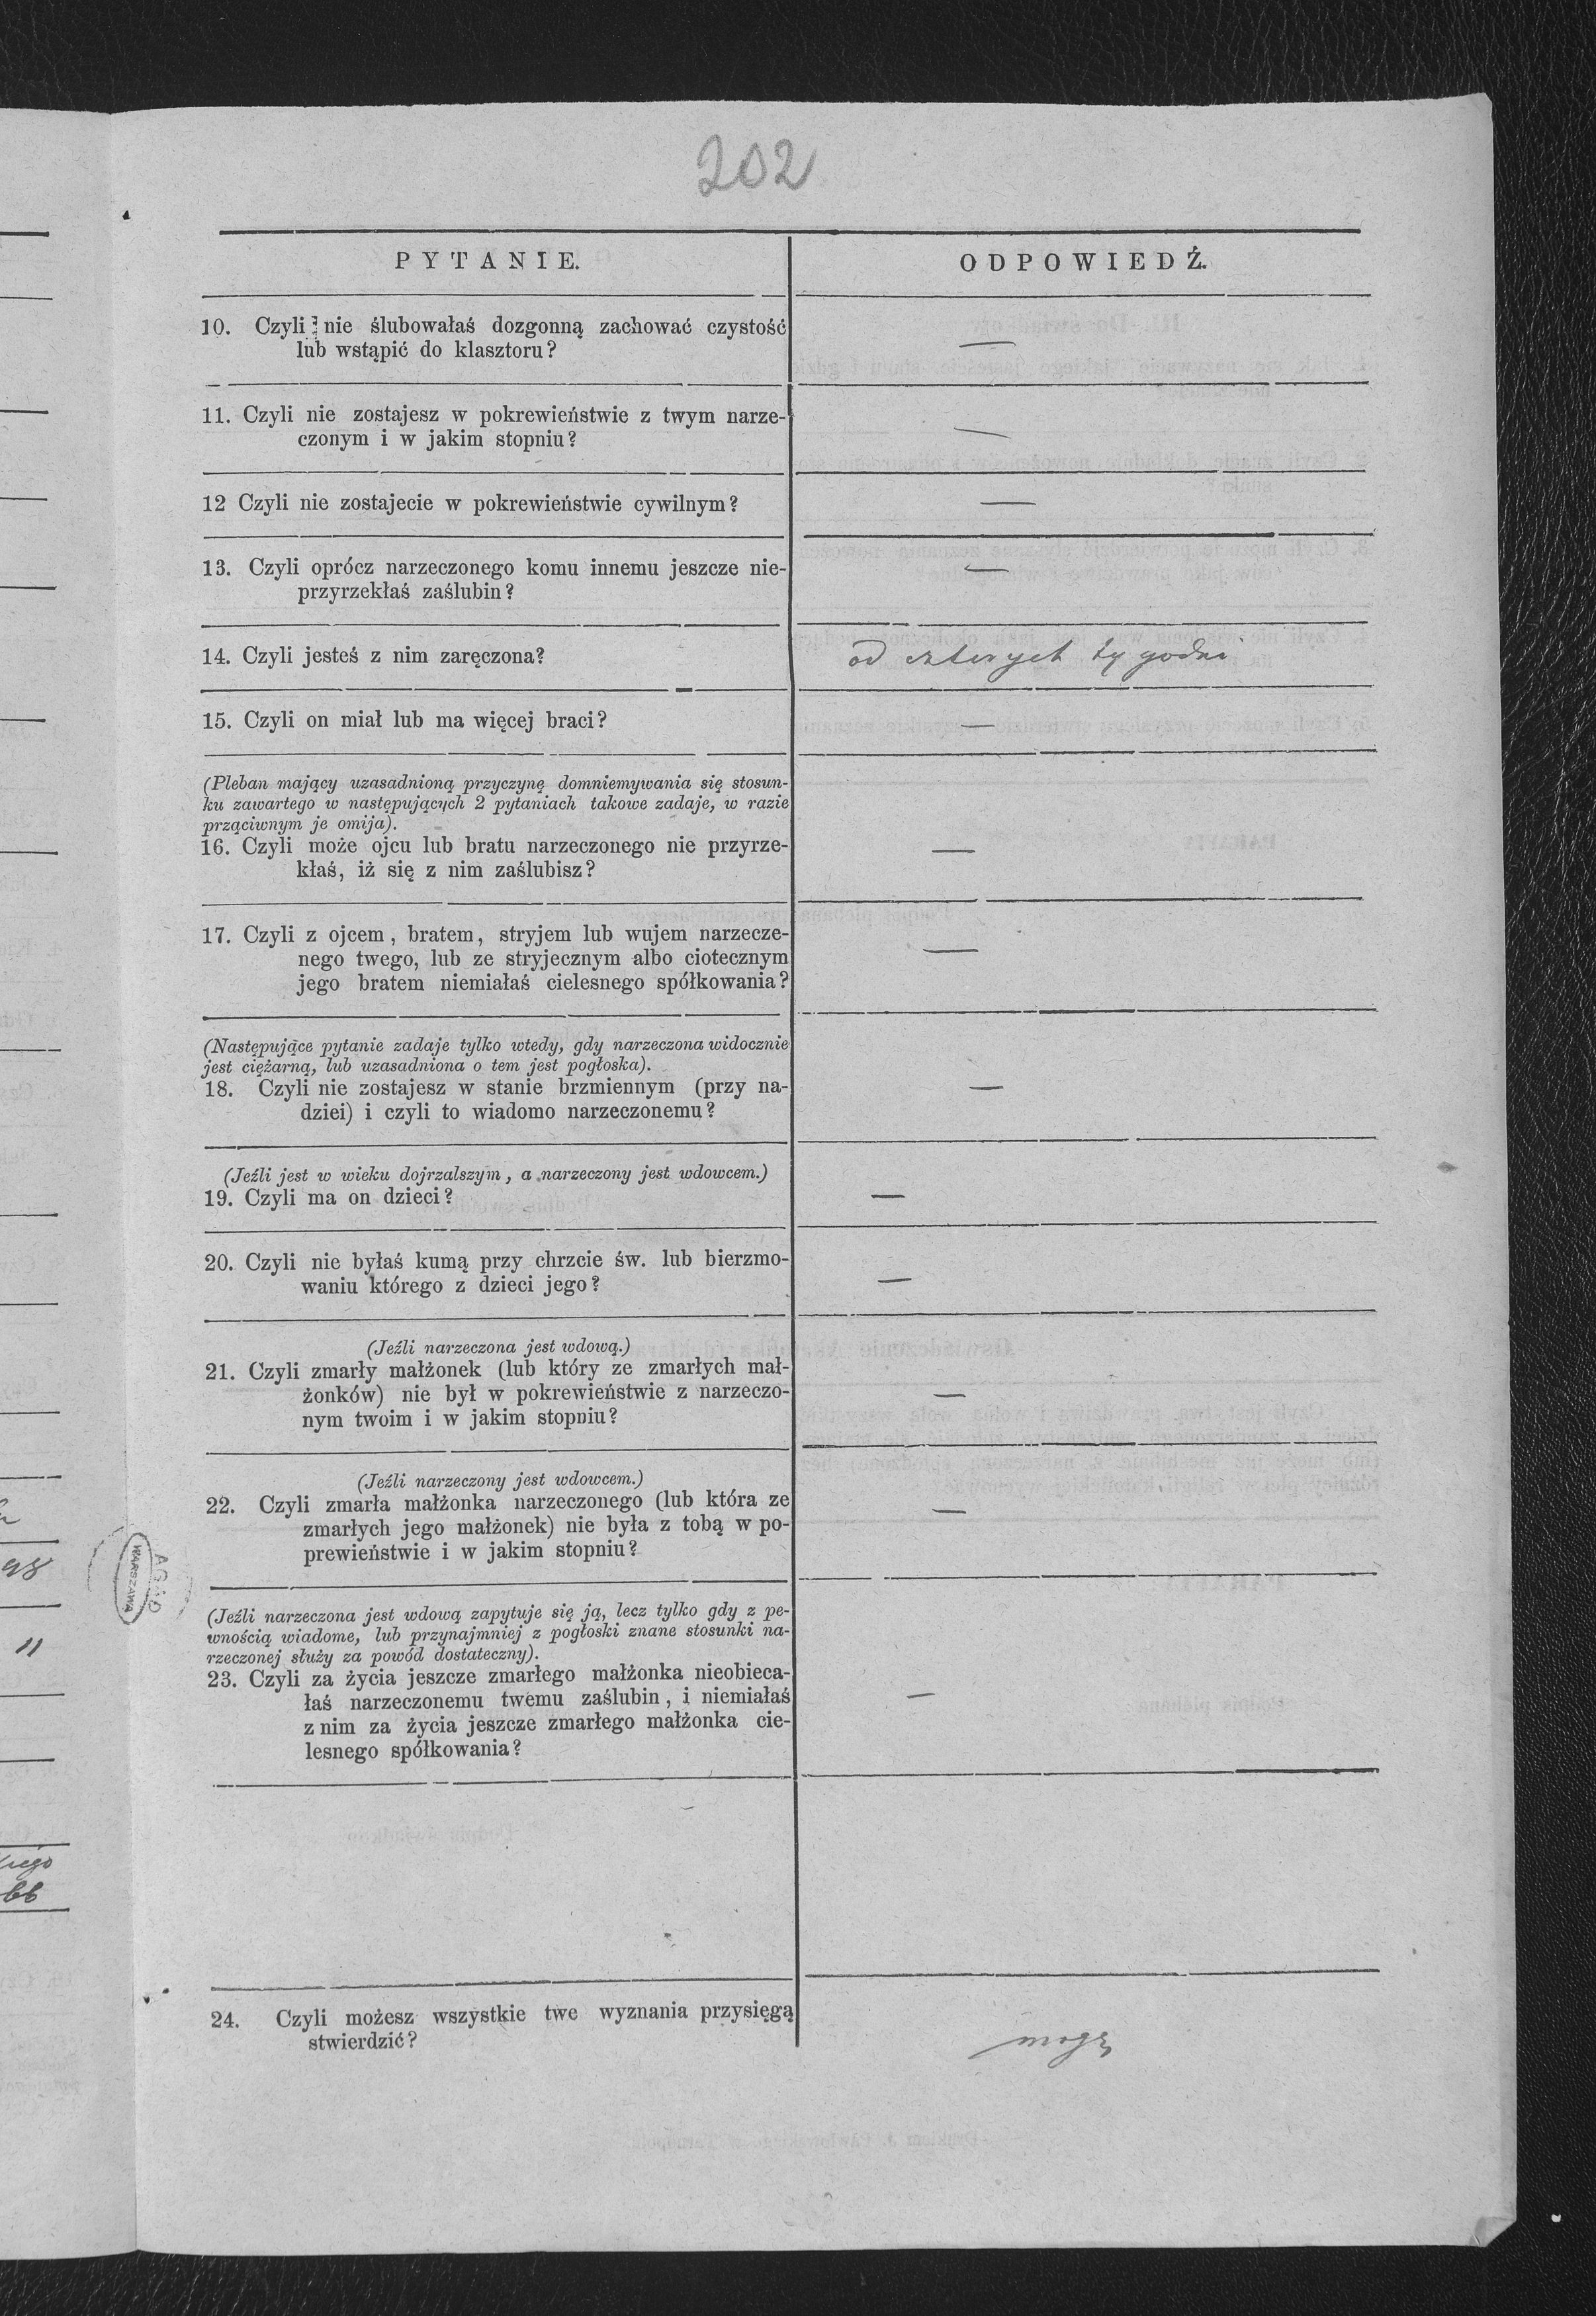 202
PYTANIE.
ODPOWIEDŹ.
10. Czyli nie ślubowałaś dozgonną zachować czystość
lub wstąpić do klasztoru?
—
11. Czyli nie zostajesz w pokrewieństwie z twym narze-
czonym i w jakim stopniu?
—
12 Czyli nie zostajecie w pokrewieństwie cywilnym?
—
13. Czyli oprócz narzeczonego komu innemu jeszcze nie-
przyrzekłaś zaślubin?
—
14. Czyli jesteś z nim zaręczona?
od czterych tygodni
15. Czyli on miał lub ma więcej braci?
—
(Pleban mający uzasadnioną przyczynę domniemywania się stosun-
ku zawartego w następujących 2 pytaniach takowe zadaje, w razie
prząciwnym je omija).
16. Czyli może ojcu lub bratu narzeczonego nie przyrze-
kłaś, iż się z nim zaślubisz?
—
17. Czyli z ojcem, bratem, stryjem lub wujem narzecze-
nego twego, lub ze stryjecznym albo ciotecznym
jego bratem niemiałaś cielesnego spółkowania?
—
(Następujące pytanie zadaje tylko wtedy, gdy narzeczona widocznie
jest ciężarną, lub uzasadniona o tem jest pogłoska).
18. Czyli nie zostajesz w stanie brzmiennym (przy na-
dziei) i czyli to wiadomo narzeczonemu?
—
(Jeźli jest w wieku dojrzalszym, a narzeczony jest wdowcem.)
19. Czyli ma on dzieci?
—
20. Czyli nie byłaś kumą przy chrzcie św. lub bierzmo-
waniu którego z dzieci jego?
—
(Jeźli narzeczona jest wdową.)
21. Czyli zmarły małżonek (lub który ze zmarłych mał-
żonków) nie był w pokrewieństwie z narzeczo-
nym twoim i w jakim stopniu?
—
(Jeźli narzeczony jest wdowcem.)
22. Czyli zmarła małżonka narzeczonego (lub która ze
zmarłych jego małżonek) nie była z tobą w po-
prewieństwie i w jakim stopniu?
—
(Jeźli narzeczona jest wdową zapytuje się ją, lecz tylko gdy z pe-
wnością wiadome, lub przynajmniej z pogłoski znane stosunki na-
rzeczonej służy za powód dostateczny).
23. Czyli za życia jeszcze zmarłego małżonka nieobieca-
łaś narzeczonemu twemu zaślubin, i niemiałaś
z nim za życia jeszcze zmarłego małżonka cie-
lesnego spółkowania?
—
24. Czyli możesz wszystkie twe wyznania przysięgą
stwierdzić?
mogę
98
11
66
AGAD
WARSZAWA